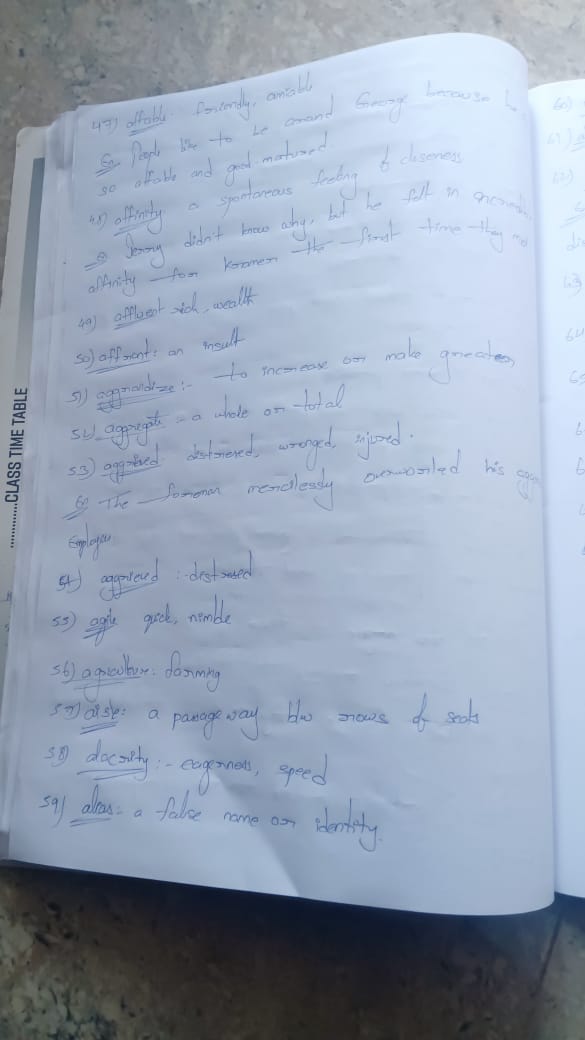 47) affable: friendly, amiable
Eg People like to be around George because he
so affable and good-natured
48) affinity a spontaneous feeling of closeness
Eg Jerry didn't know why, but he felt in
affinity for kramer the first time they met
49) affluent rich, wealth
50) affront: an insult
51) aggrandize:- to increase or make greater
52) aggregate :- a whole or total
53) aggrieved: distressed, wronged, injured.
Eg The foreman mercilessly overworked his
Employees
54) aggrieved :- distressed
55) agile quick, nimble
56) agriculture: farming
57) aisle: a passageway b/w rows of seats
58) alacrity :- eagerness, speed
59) alias: a false name or identity.
..............CLASS TIME TABLE
60)
61)
62)
di
63
64